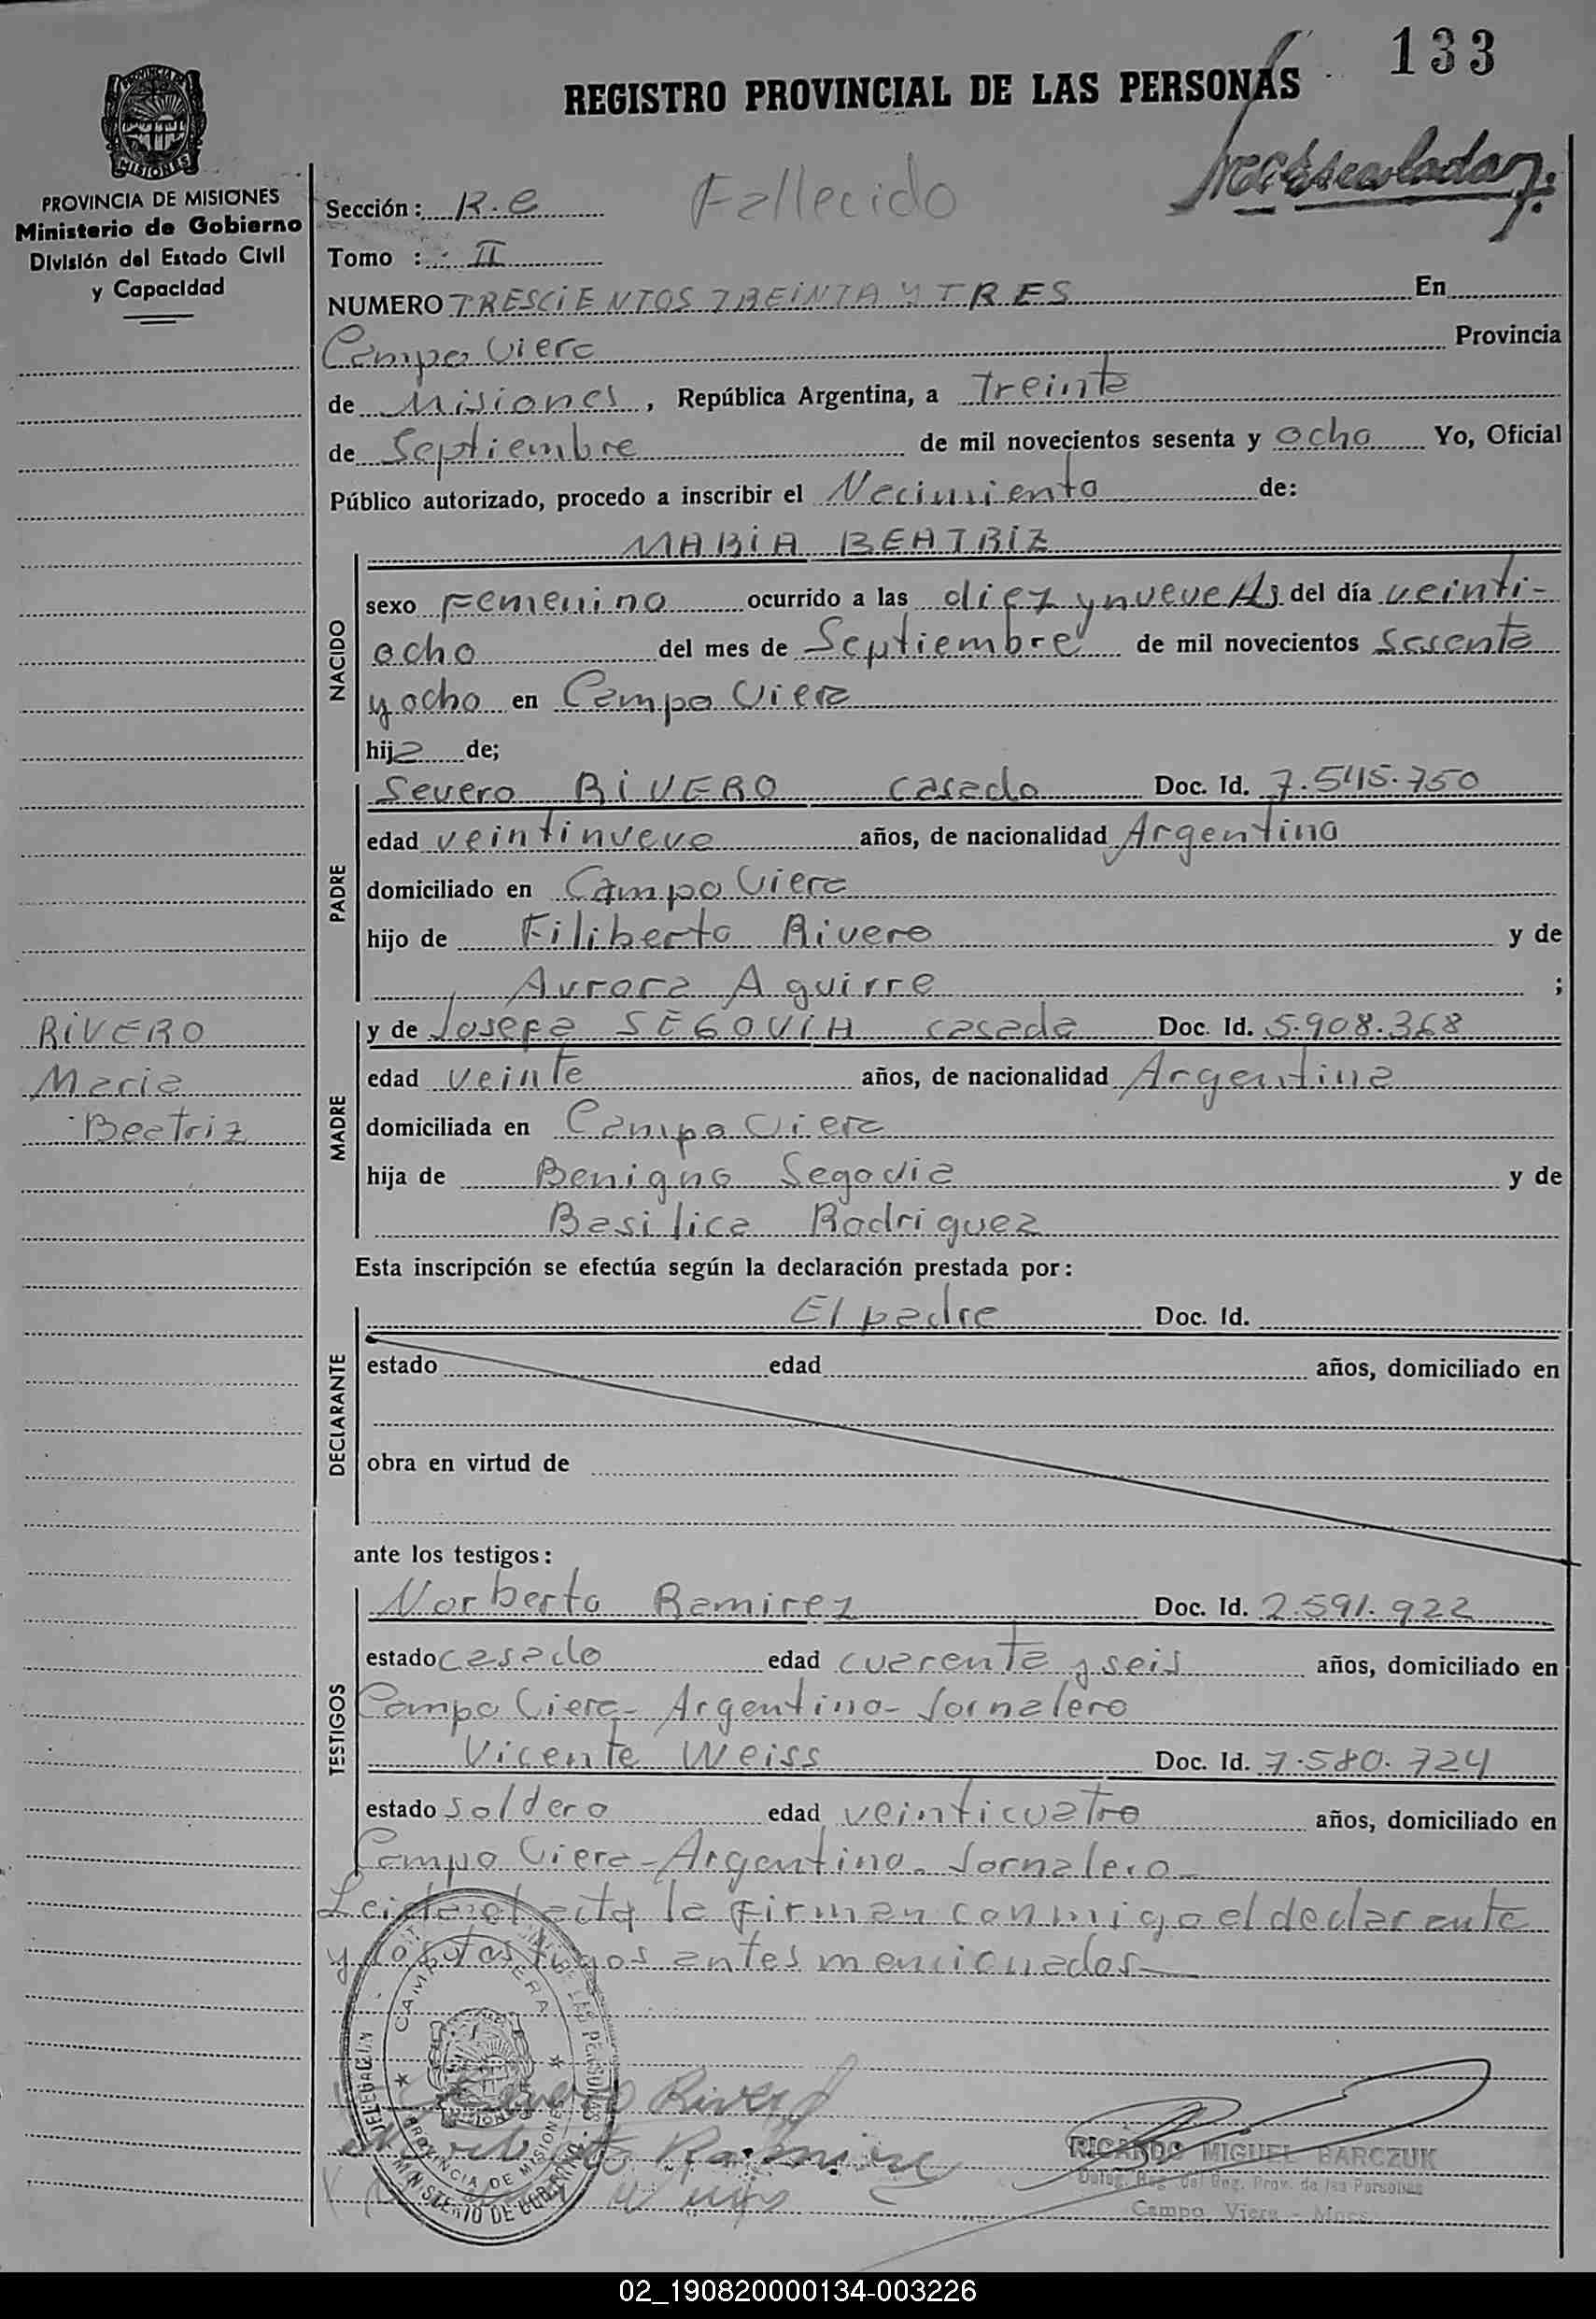 133
REGISTRO PROVINCIAL DE LAS PERSONAS
PROVINCIA DE MISIONES
Ministerio de Gobierno
División del Estado Civil
y Capacidad
Sección: R.e
Fallecido
Tomo : II
NUMERO TRESCIENTOS TREINTA Y TRES En
Campo Viera Provincia
de Misiones, República Argentina, a Treinta
de Septiembre de mil novecientos sesenta y ocho Yo, Oficial
Público autorizado, procedo a inscribir el Nacimiento de:
MARIA BEATRIZ
NACIDO
sexo Femenino ocurrido a las diez y nueve Hs del día veinti-
ocho del mes de Septiembre de mil novecientos Sesenta
y ocho en Campo Viera
hija de;
PADRE
Severo RIVERO casado Doc. Id. 7.545.750
edad veintinueve años, de nacionalidad Argentino
domiciliado en Campo Viera
hijo de Filiberto Rivero y de
Aurora Aguirre ;
RIVERO
Maria
Beatriz
MADRE
y de Josefa SEGOVIA casada Doc. Id. 5.908.368
edad veinte años, de nacionalidad Argentina
domiciliada en Campo Viera
hija de Benigno Segovia y de
Basilica Rodriguez
Esta inscripción se efectúa según la declaración prestada por:
DECLARANTE
El padre Doc. Id.
estado edad años, domiciliado en
obra en virtud de
ante los testigos:
TESTIGOS
Norberto Ramirez Doc. Id. 2.591.922
estado casado edad cuarenta y seis años, domiciliado en
Campo Viera- Argentino- Jornalero
Vicente Weiss Doc. Id. 7.580.724
estado soldero edad veinticuatro años, domiciliado en
Campo Viera-Argentino. Jornalero
Leida el acta la firman conmigo el declarante
y los testigos antes mencionados
DELEGACION
CAMPO VIERA
PROVINCIA DE MISIONES
MINISTERIO DE GOBIERNO
Severo Rivero
Norberto Ramirez
RICARDO MIGUEL BARCZUK
Deleg. Reg. del Reg. Prov. de las Personas
Campo Viera - Mnes.
02_190820000134-003226